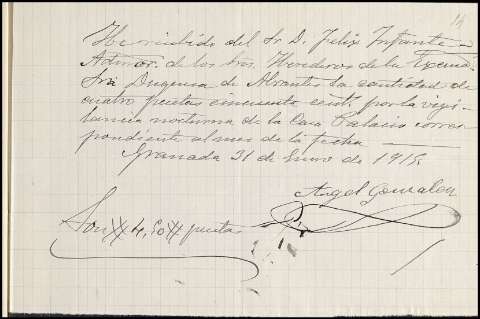 14
He recibido del Sr. D. Felix Infante
Admor. de los Sres. Herederos de la Excma.
Sra. Duquesa de Abrantes la cantidad de
cuatro pesetas cincuenta cents por la vigi-
lancia nocturna de la Casa Palacio corres-
pondiente al mes de la fecha
Granada 31 de Enero de 1915.
Angel Gonzalez
Son 4,50 pesetas